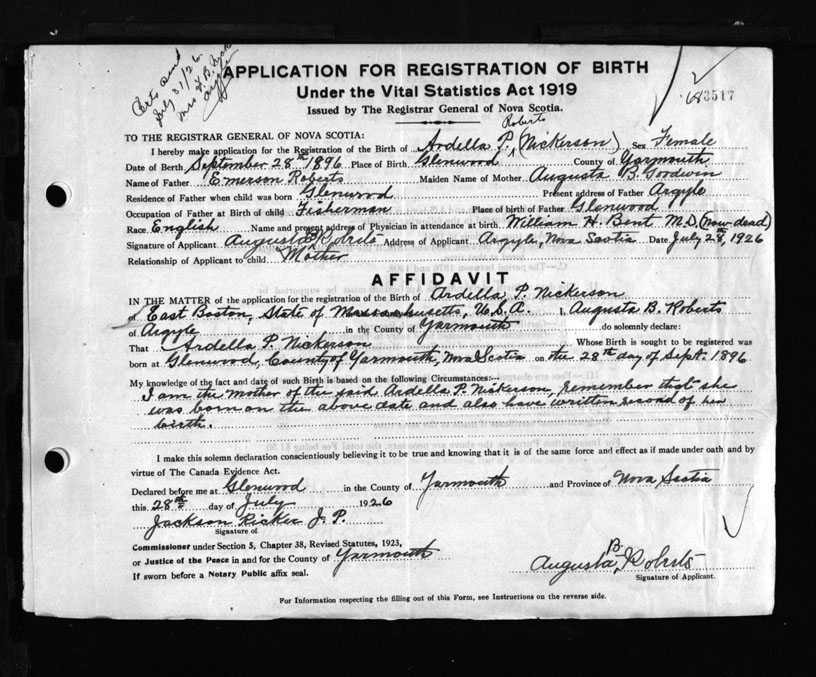 Certs and
July 31/26.
Mrs
Argyle
APPLICATION FOR REGISTRATION OF BIRTH
Under the Vital Statistics Act 1919
Issued by The Registrar General of Nova Scotia.
63517
TO THE REGISTRAR GENERAL OF NOVA SCOTIA:
Roberts
I hereby make application for the Registration of the Birth of Ardella P. (Nickerson) Sex Female
Date of Birth September 28th 1896 Place of Birth Glenwood County of Yarmouth
Name of Father Emerson Roberts Maiden Name of Mother Augusta B. Goodwin
Residence of Father when child was born Glenwood Present address of Father Argyle
Occupation of Father at Birth of child Fisherman Place of birth of Father Glenwood
Race English Name and present address of Physician in attendance at birth William H. Bent M.D. (now dead)
Signature of Applicant Augusta B Roberts Address of Applicant Argyle, Nova Scotia Date July 28th, 1926
Relationship of Applicant to child Mother
AFFIDAVIT
IN THE MATTER of the application for the registration of the Birth of Ardella P. Nickerson
of East Boston, State of Massachusetts, U.S.A. I, Augusta B. Roberts
of Argyle in the County of Yarmouth do solemnly declare:
That Ardella P. Nickerson Whose Birth is sought to be registered was
born at Glenwood, County of Yarmouth, Nova Scotia on the 28th day of Sept. 1896
My knowledge of the fact and date of such Birth is based on the following Circumstances:—
I am the mother of the said Ardella P. Nickerson, remember that she
was born on the above date and also have written record of her
birth.
I make this solemn declaration conscientiously believing it to be true and knowing that it is of the same force and effect as if made under oath and by
virtue of The Canada Evidence Act.
Declared before me at Glenwood in the County of Yarmouth and Province of Nova Scotia
this 28th day of July 1926
Jackson Ricker J.P.
Signature of
Commissioner under Section 5, Chapter 38, Revised Statutes, 1923,
or Justice of the Peace in and for the County of Yarmouth
If sworn before a Notary Public affix seal.
Augusta B. Roberts
Signature of Applicant.
For Information respecting the filling out of this Form, see Instructions on the reverse side.